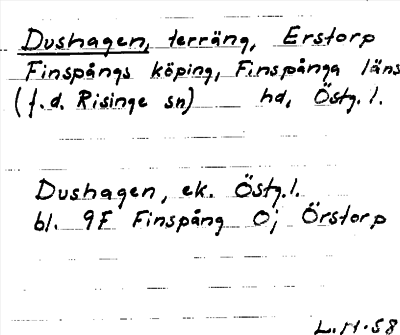 Dushagen, terräng, Erstorp
Finspångs köping, Finspånga läns
(f.d. Risinge sn) hd, Östg.l.
Dushagen, ek. Östg.l.
bl. 9F Finspång Ö; Örstorp
L.H.58